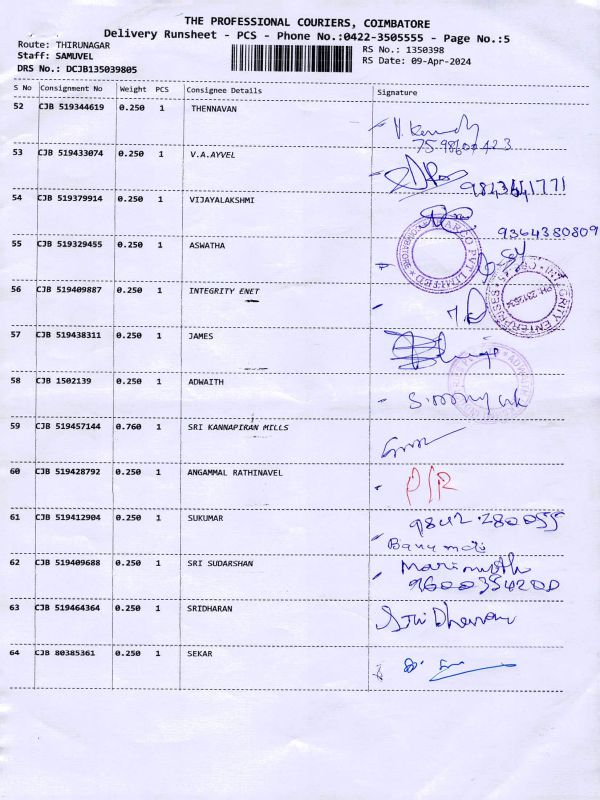 THE PROFESSIONAL COURIERS, COIMBATORE
Delivery Runsheet - PCS - Phone No.:0422-3505555 - Page No.:5
Route: THIRUNAGAR
RS No.: 1350398
Staff: SAMUVEL
RS Date: 09-Apr-2024
DRS No.: DCJB135039805
S No Consignment No Weight PCS Consignee Details Signature
52 CJB 519344619 0.250 1 THENNAVAN
V. Kennedy
53 CJB 519433074 0.250 1 V.A.AYVEL
54 CJB 519379914 0.250 1 VIJAYALAKSHMI
9364380809
55 CJB 519329455 0.250 1 ASWATHA
56 CJB 519409887 0.250 1 INTEGRITY ENET
57 CJB 519438311 0.250 1 JAMES
58 CJB 1502139 0.250 1 ADWAITH
59 CJB 519457144 0.760 1 SRI KANNAPIRAN MILLS
60 CJB 519428792 0.250 1 ANGAMMAL RATHINAVEL
61 CJB 519412904 0.250 1 SUKUMAR
9842.280055
62 CJB 519409688 0.250 1 SRI SUDARSHAN
Marimuth
9600354200
63 CJB 519464364 0.250 1 SRIDHARAN
SriDharan
64 CJB 80385361 0.250 1 SEKAR